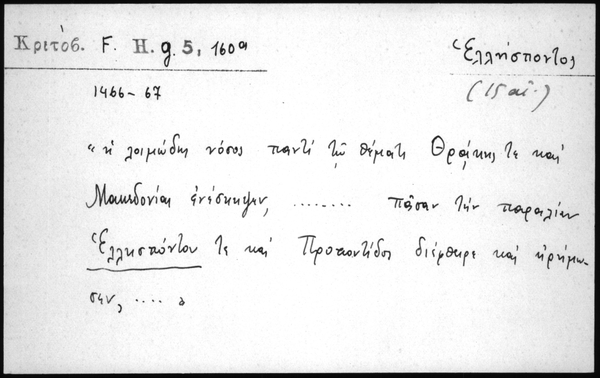 Κριτόβ. F. H. g. 5, 160α
Ἑλλήσποντος
1466-67
(15 αἰ.)
"ἡ λοιμώδης νόσος παντὶ τῷ θέματι Θρᾴκης τε καὶ
Μακεδονίας ἐνέσκηψεν, ........ πᾶσαν τὴν παραλίαν
Ἑλλησπόντου τε καὶ Προποντίδος διέφθειρε καὶ ἠρήμω-
σεν, .... »